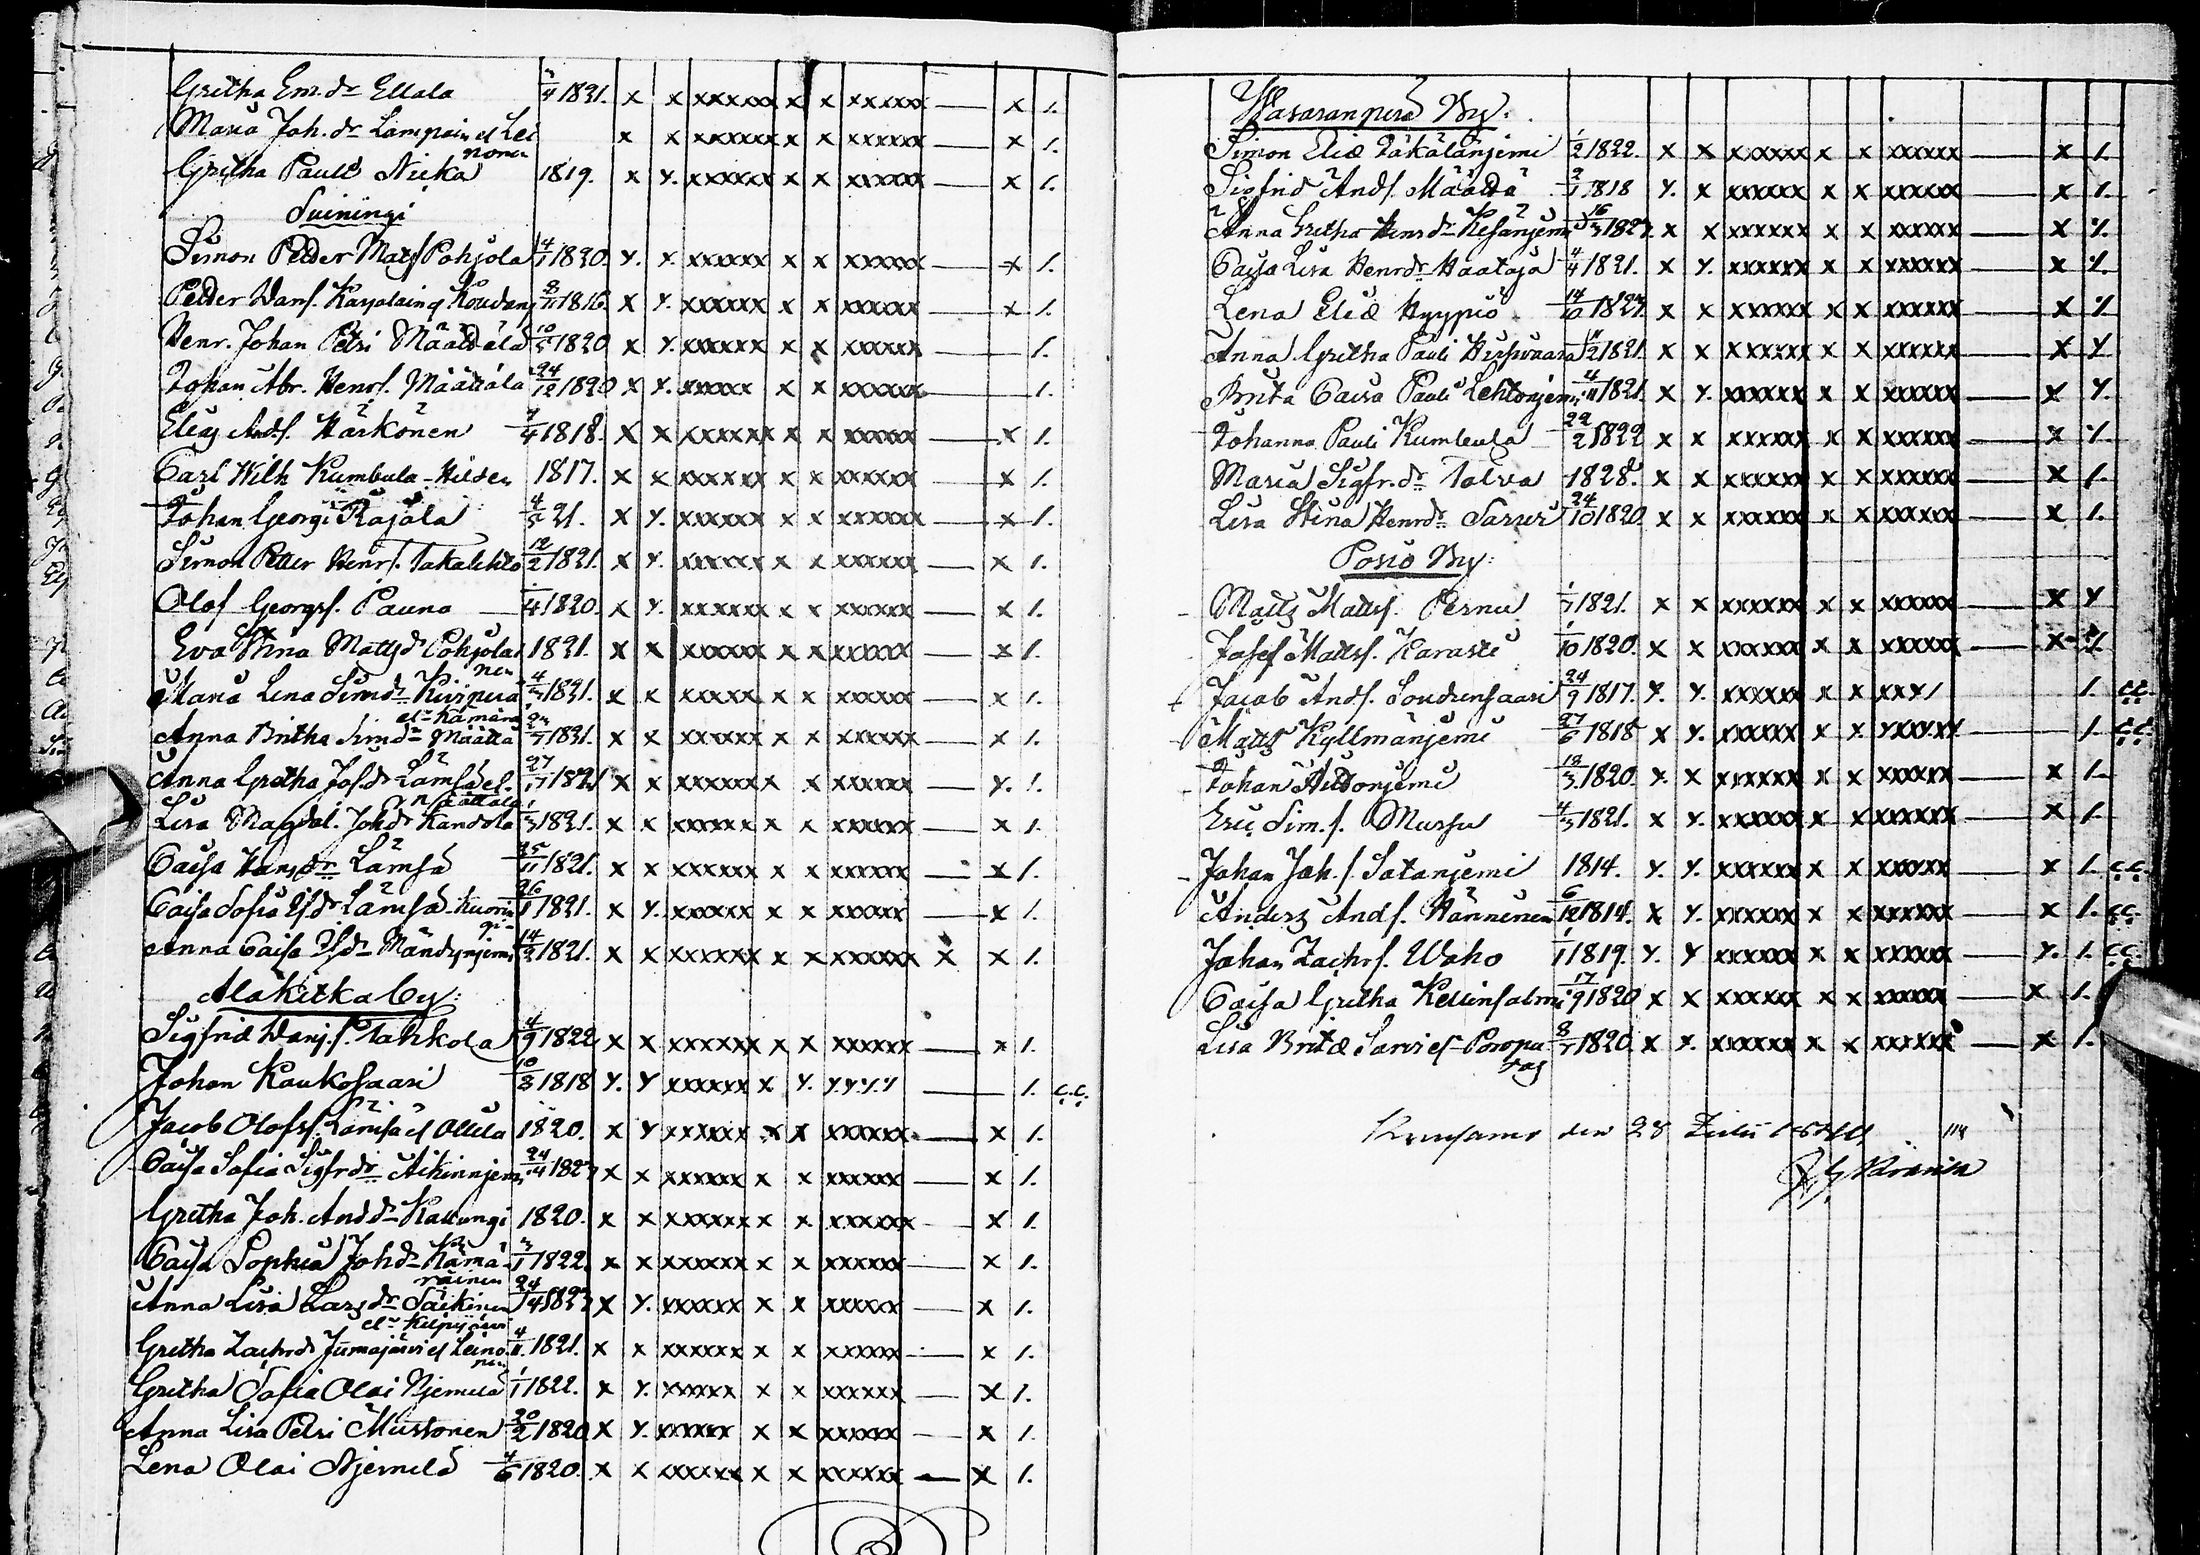 Gretha Em. dr Ellala 4 1821. x x xxxxxx x x xxxxxx — x 1.
Maria Joh. dr Lampain el Lei x x xxxxxx x x xxxxxx — x 1.
nonen
Gretha Pauli Nicka 1819. x y. xxxxxx x x xxxxxx — x 1.
Suiningi
Simon Petter Mats Pohjola 4/1 1820. y. x xxxxxx x x xxxxxx — x 1.
Petter Hans. Karjalain 8/11 1816. x y. xxxxxx x x xxxxxx — x 1.
Henr. Johan Petri Määttälä 10/5 1820 x y. xxxxxx x x xxxxxx — 1.
Johan Abr. Henrs. Määttälä 24/12 1820 x y. xxxxx x x xxxxxx — 1.
Elias Ands. Härkönen 7/4 1818. x x xxxxxx x x xxxxxx — x 1.
Carl Wilh Kumbula - Hilden 1817. x x xxxxxx x x xxxxxx — x 1.
Johan Georgi Rajala 4/5 21. x y. xxxxxx x x xxxxxx — x 1.
Simon Petter Henrs. Takalehto 12/2 1821. x y. xxxxxx x x xxxxxx — x 1.
Olof Georgs. Pauna — 4 1820. x y. xxxxxx x x xxxxxx — x 1.
Eva Stina Matts dr Pohjola 1821. x x xxxxxx x x xxxxxx — x 1.
nen
Maria Lena Sim dr Kivipera 4/3 1821. x x xxxxxx x x xxxxxx — x 1.
el Kämärä
Anna Britha Sim dr Määttä 1821. x x xxxxxx x x xxxxxx — x 1.
Anna Gretha Jos. dr Lämsä el. 27 1821 x x xxxxxx x x xxxxxx — y. 1.
Määttälä
Lisa Magdal. Joh dr Kandola 1/3 1821. x x xxxxxx x x xxxxxx — x 1.
Caisa Hans dr Lämsä 25/11 1821. x x xxxxxx x x xxxxxx — x 1.
Caisa Sofia dr Lämsä. Kuorin 26/1 1821. x y. xxxxxx x x xxxxxx — x 1.
Anna Caisa dr Mändynjemi 14/2 1821. x x xxxxxx x x xxxxxx x x 1.
Alakitka by:
Sigfrid Danj. s. Tahkola 4/9 1822 x x xxxxxx x x xxxxxx — x 1.
Johan Kaukosaari 10/3 1818 y. y xxxxxx x y. y.y.y.y — 1. c.c.
Jacob Olofss. Lämsä el Ollila 1820. x y xxxxxx x x xxxxxx — x 1.
Caisa Sofia Sigfr dr Aikinnjemi 24 182 x x xxxxxx x x xxxxxx — x 1.
Gretha Joh. And dr Kallungi 1820. x x xxxxxx x x xxxxxx — x 1.
Caisa Sophia Joh dr Kämä- 3/1 1822. x x xxxxxx x x xxxxxx — x 1.
räinen
Anna Lisa Lars dr Säikinen 24/4 182 x y. xxxxxx x x xxxxxx — x 1.
el Kilpijärvi
Gretha Zachr dr Jumajärvi el Leino 4/11 1821. x x xxxxxx x x xxxxxx — x 1.
nen
Gretha Sofia Olai Njemelä 1/1 1822. x y. xxxxxx x x xxxxxx — x 1.
Anna Lisa Petri Mustonen 20/2 1820 x y. xxxxxx x x xxxxxx — x 1.
Lena Olai Njemelä 4/6 1820. x x xxxxxx x x xxxxxx — x 1.
Wasaranperä By:
Simon Eliæ Jäkälänjemi 1/2 1822. x x xxxxxx x x xxxxxx — x 1.
Sigfrid Ands. Määttä 2/1 1818 y. x xxxxxx x x xxxxxx — x 1.
Anna Gretha Henr dr Kesänjemi 16/3 182 x x xxxxxx x x xxxxxx — x 1.
Caisa Lisa Henr dr Haataja 4/4 1821. x y. xxxxxx x x xxxxxx — x 1.
Lena Eliæ Hyypiö 14/10 182 x x xxxxxx x x xxxxxx — x 1
Anna Gretha Pauli Hirsivaara 1821 x x xxxxxx x x xxxxxx — x 1
Brita Caisa Pauli Lehtonjemi 4/11 1821. x y. xxxxxx x x xxxxxx — x 1.
Johanna Pauli Kumbula 22/2 1822 x x xxxxxx x x xxxxxx — x 1.
Maria Sigfr. dr Talvia 182 x x xxxxxx x x xxxxxx — x 1.
Lisa Stina Henr dr Sarvi 24/10 1820 x x xxxxxx x x xxxxxx — x 1.
Posio By:
Matts Matts s. Pernu 1/7 1821. x x xxxxxx x x xxxxxx — x 1
Josef Matts s. Karasti 1/10 1820. x x xxxxxx x x xxxxxx — x 1.
Jacob Ands. Soudensaari 24/9 1817. y. y. xxxxxx x x xxy1 1. c.c.
Matts Kyllmänjemi 27/6 1818 x y. xxxxxx x x yxxyxy — 1. c.c.
Johan Aittonjemi 12/3 1820. y. x xxxxxx x x xxxxxx — x 1.
Eric Sim. s. Mursu 4/3 1821. x y. xxxxxx x x xxxxxx — x 1.
Johan Joh. s. Satanjemi 1814. y. y. xxxxxx x x xxxxxx — x 1. c.c.
Anders Ands. Hänninen 6/12 1814. x y. xxxxxx x x xxxxxx — x 1. c.c.
Johan Zachr s. Waho 1/1 1819. y. y xxxxxx x x xxxxxx — y. 1. c.c.
Caisa Gretha Kellinsalmi 17/9 1820 x x xxxxxx x x xxxxxx — x 1.
Lisa Britæ Sarvi el Poropu- 8/7 1820. x y. xxxxxx x x xxxxxx — x 1.
das
Kuusamo den 28 Julii